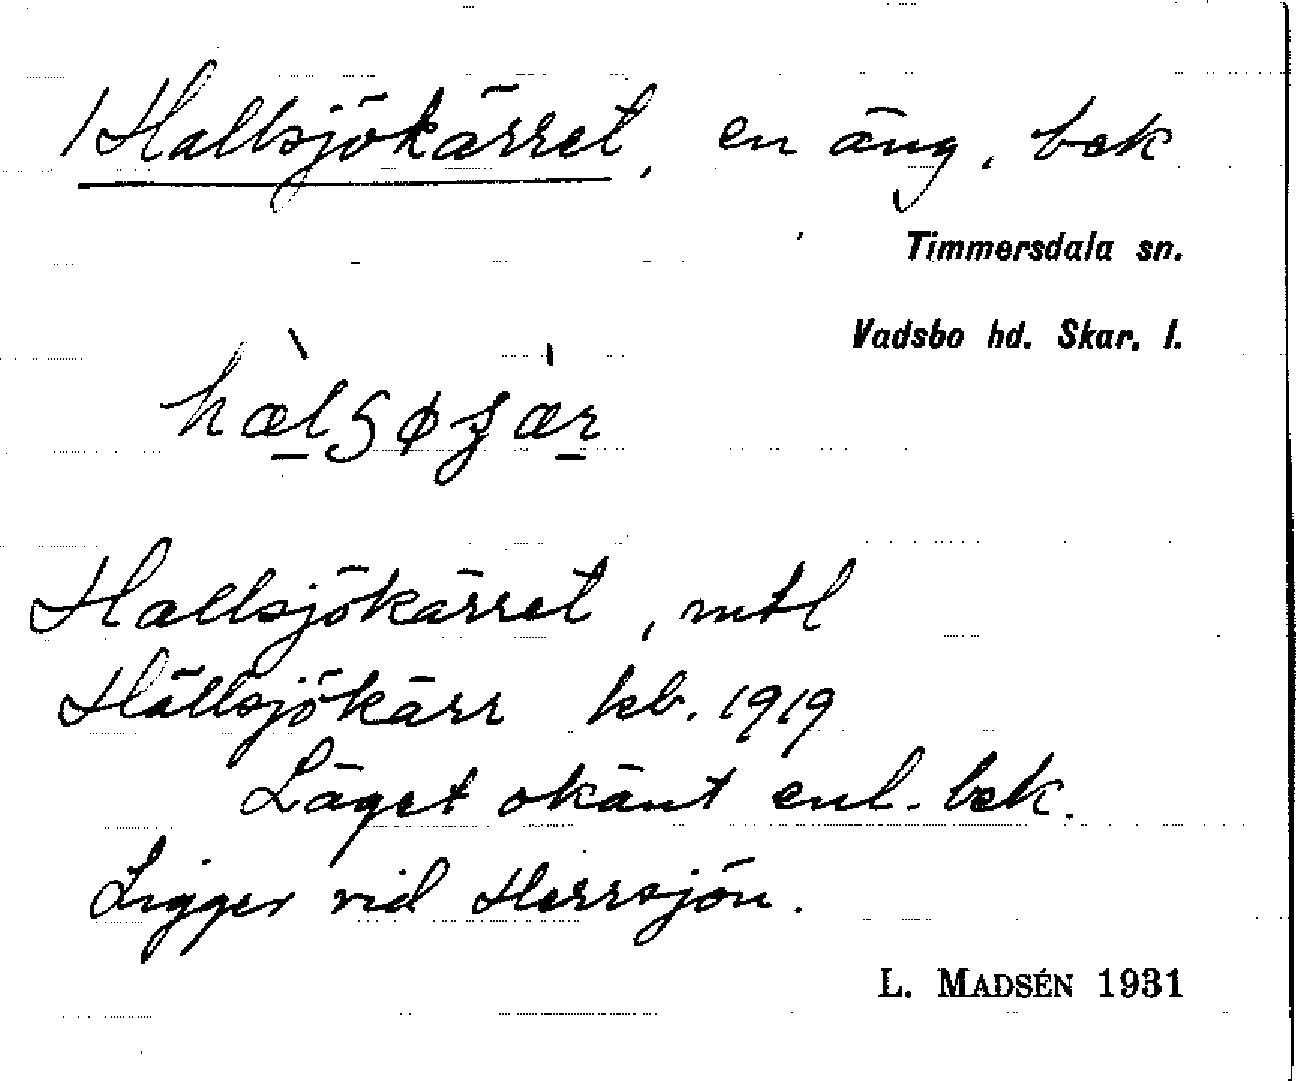 /Hallsjökärret, en äng, bek
Timmersdala sn.
Vadsbo hd. Skar. l.
Hallsjökärret, mtl
Hällsjökärr kb. 1919
Läget okänt enl. bek.
Ligger vid Herrsjön.
L. MADSÉN 1931